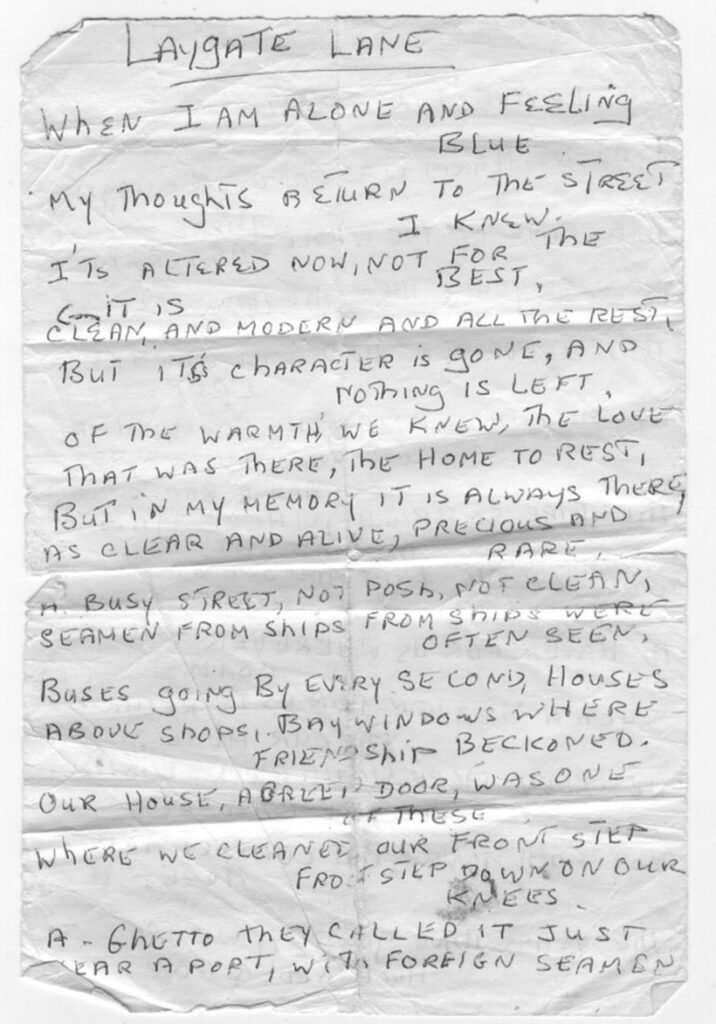 LAYGATE LANE
WHEN I AM ALONE AND FEELING
BLUE
MY THOUGHTS RETURN TO THE STREET
I KNEW.
I'TS ALTERED NOW, NOT FOR THE
BEST,
IT IS
CLEAN, AND MODERN AND ALL THE REST,
BUT ITS CHARACTER IS GONE, AND
NOTHING IS LEFT,
OF THE WARMTH WE KNEW, THE LOVE
THAT WAS THERE, THE HOME TO REST,
BUT IN MY MEMORY IT IS ALWAYS THERE,
AS CLEAR AND ALIVE, PRECIOUS AND
RARE.
A BUSY STREET, NOT POSH, NOT CLEAN,
SEAMEN FROM SHIPS FROM SHIPS WERE
OFTEN SEEN,
BUSES GOING BY EVERY SECOND, HOUSES
ABOVE SHOPS, BAY WINDOWS WHERE
FRIENDSHIP BECKONED.
OUR HOUSE, A DOOR, WAS ONE
OF THESE
WHERE WE CLEANED OUR FRONT STEP
FRONT STEP DOWN ON OUR
KNEES.
A - GHETTO THEY CALLED IT JUST
NEAR A PORT, WITH FOREIGN SEAMEN